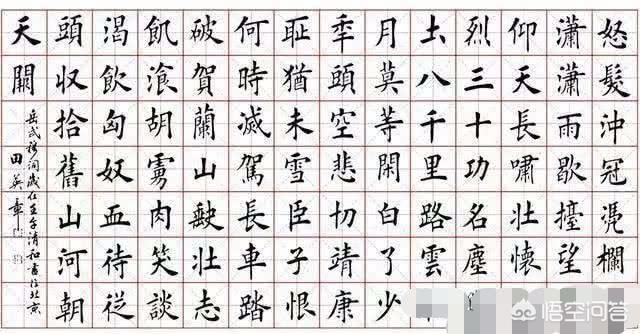 怒髮沖冠凴欄
瀟瀟雨歇擡望
仰天長嘯壯懷
烈三十功名塵
土八千里路雲
月莫等閑白了少
秊頭空悲切靖康
耻猶未雪臣子恨
何時滅駕長車踏
破賀蘭山缺壯志
飢飡胡虜肉笑談
渴飲匈奴血待從
頭収拾舊山河朝
天闕
岳武穆詞歲在壬子清和書於北京
田英章
悟空问答